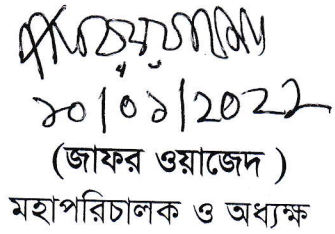 ১০/০১/2022
(জাফর ওয়াজেদ )
মহাপরিচালক ও অধ্যক্ষ